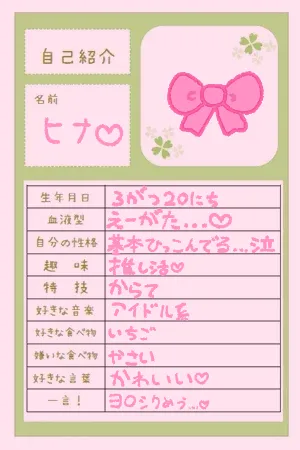 自己紹介
名前
ヒナ♡
生年月日 3がつ20にち
血液型 えーがた...♡
自分の性格 基本ひっこんでる...泣
趣味 推し活♡
特技 からて
好きな音楽 アイドル系
好きな食べ物 いちご
嫌いな食べ物 やさい
好きな言葉 かわいい♡
一言! ヨロシクめう...♡